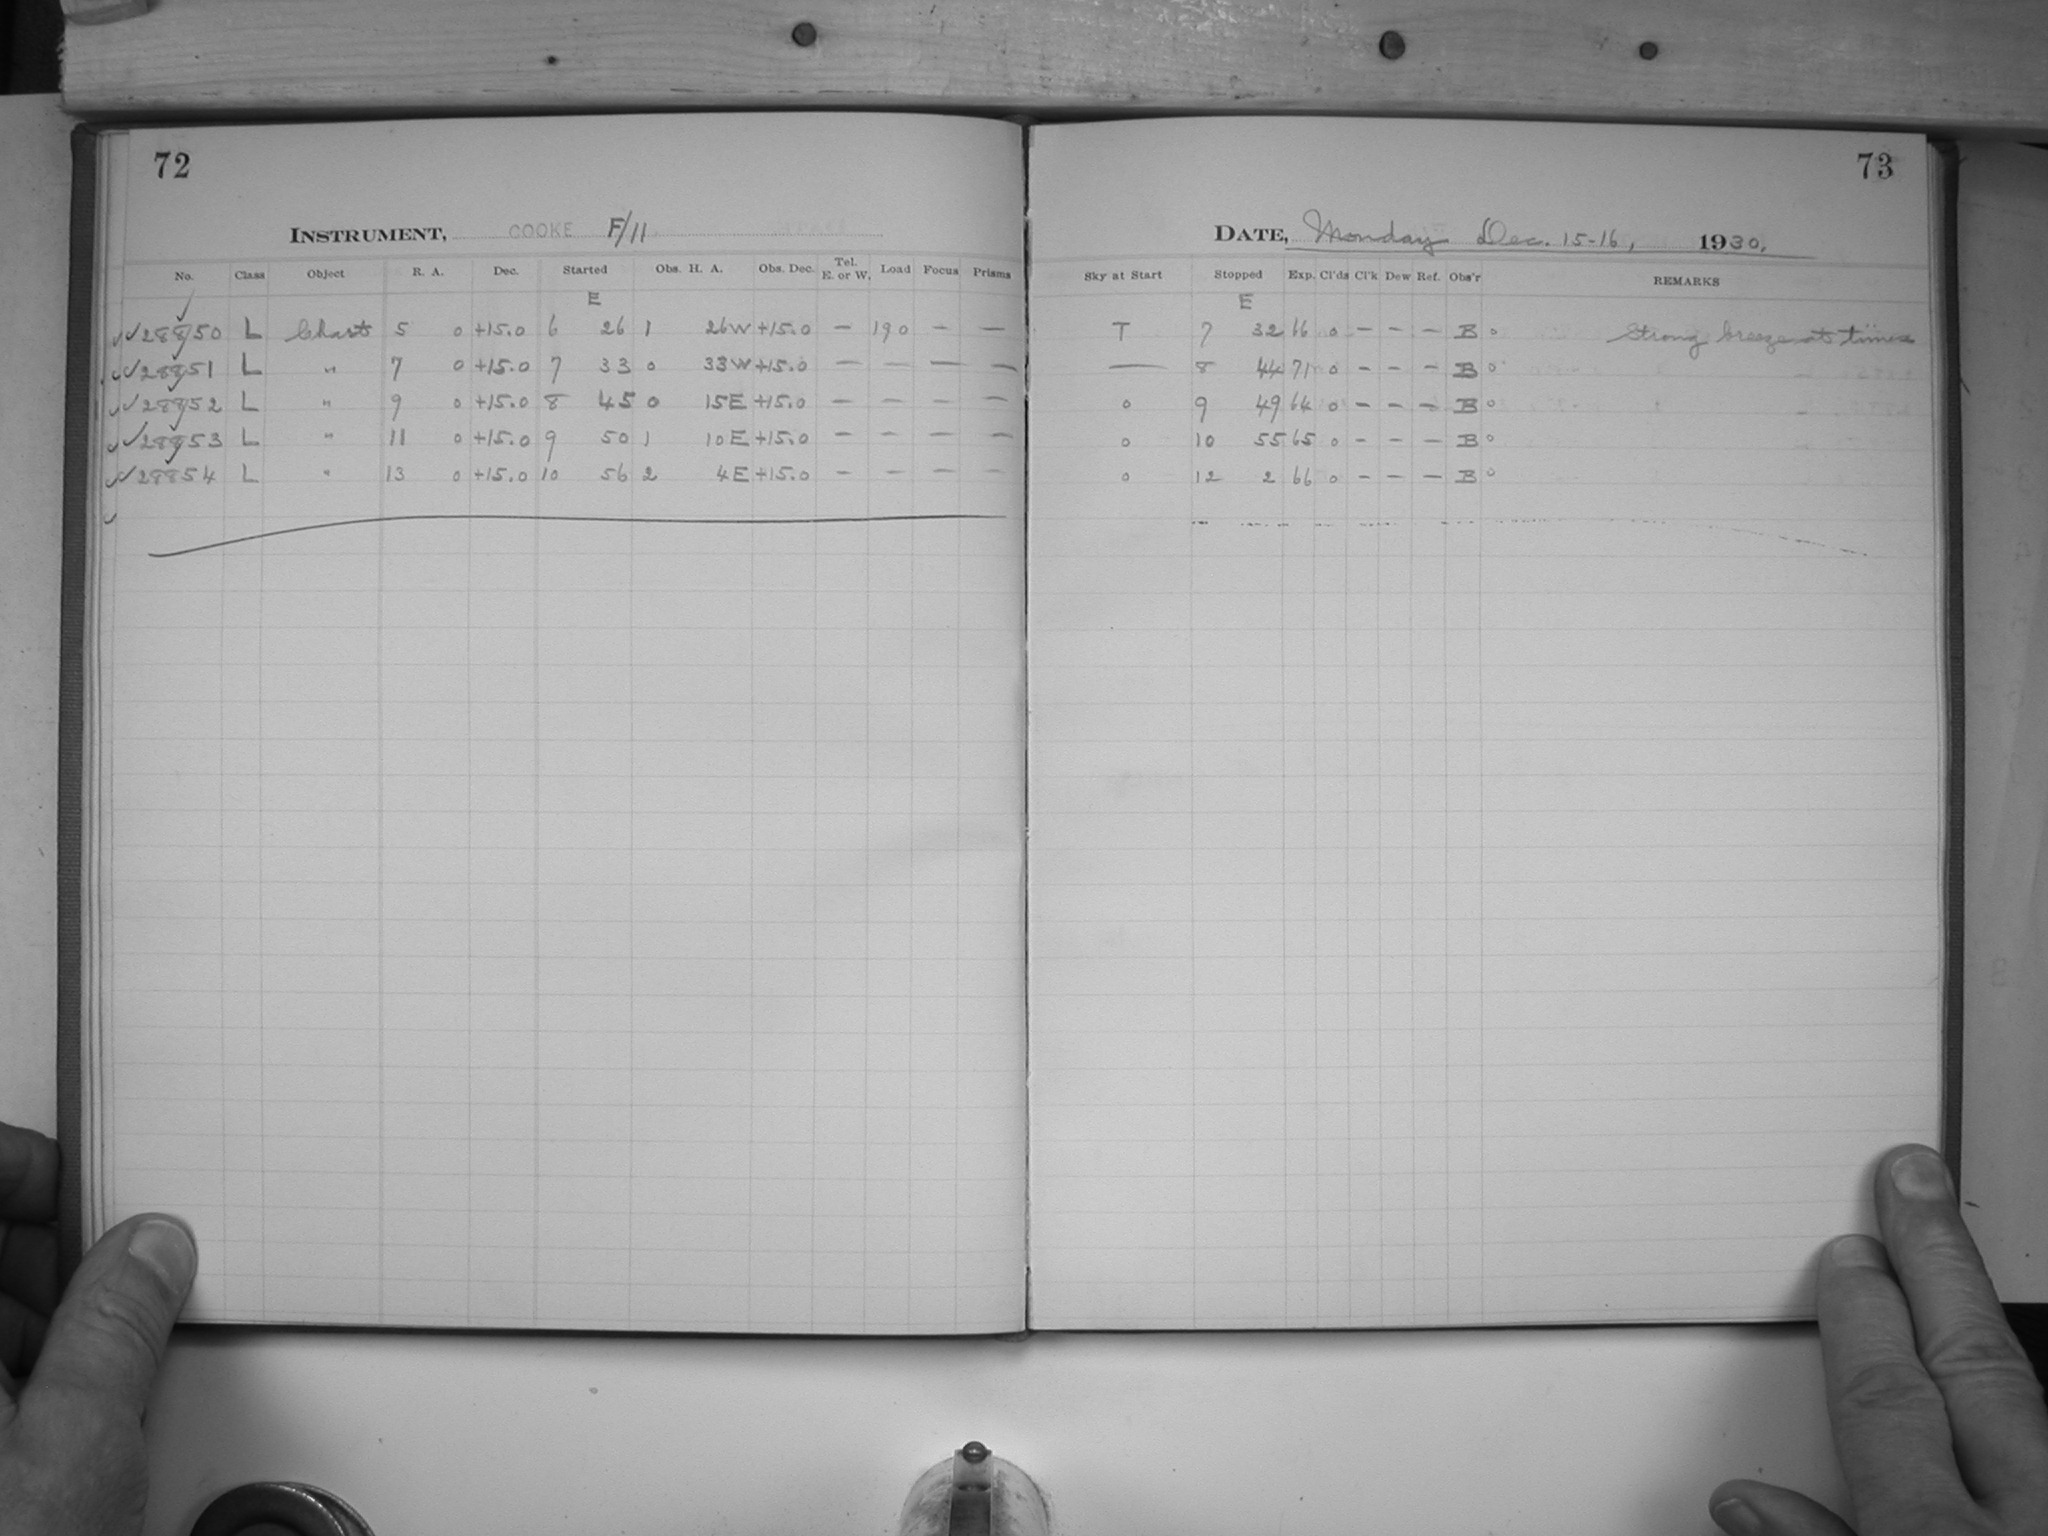 72
INSTRUMENT, COOKE F/11
No. Class Object R. A. Dec. Started Obs. H. A. Obs. Dec. Tel. E. or W. Load Focus Prisms
E
✓✓28850 L Chart 5 0 +15.0 6 26 1 26W +15.0 — 190 — —
✓✓28851 L " 7 0 +15.0 7 33 0 33W +15.0 — — — —
✓✓28852 L " 9 0 +15.0 8 45 0 15E +15.0 — — — —
✓✓28853 L " 11 0 +15.0 9 50 1 10E +15.0 — — — —
✓✓28854 L " 13 0 +15.0 10 56 2 4E +15.0 — — — —
73
DATE, Monday Dec. 15-16, 1930.
Sky at Start Stopped Exp. Cl'ds Cl'k Dew Ref. Obs'r REMARKS
E
T 7 32 66 0 — — — B 0 Strong breeze at times
— 8 44 71 0 — — — B 0
0 9 49 64 0 — — — B 0
0 10 55 65 0 — — — B 0
0 12 2 66 0 — — — B 0